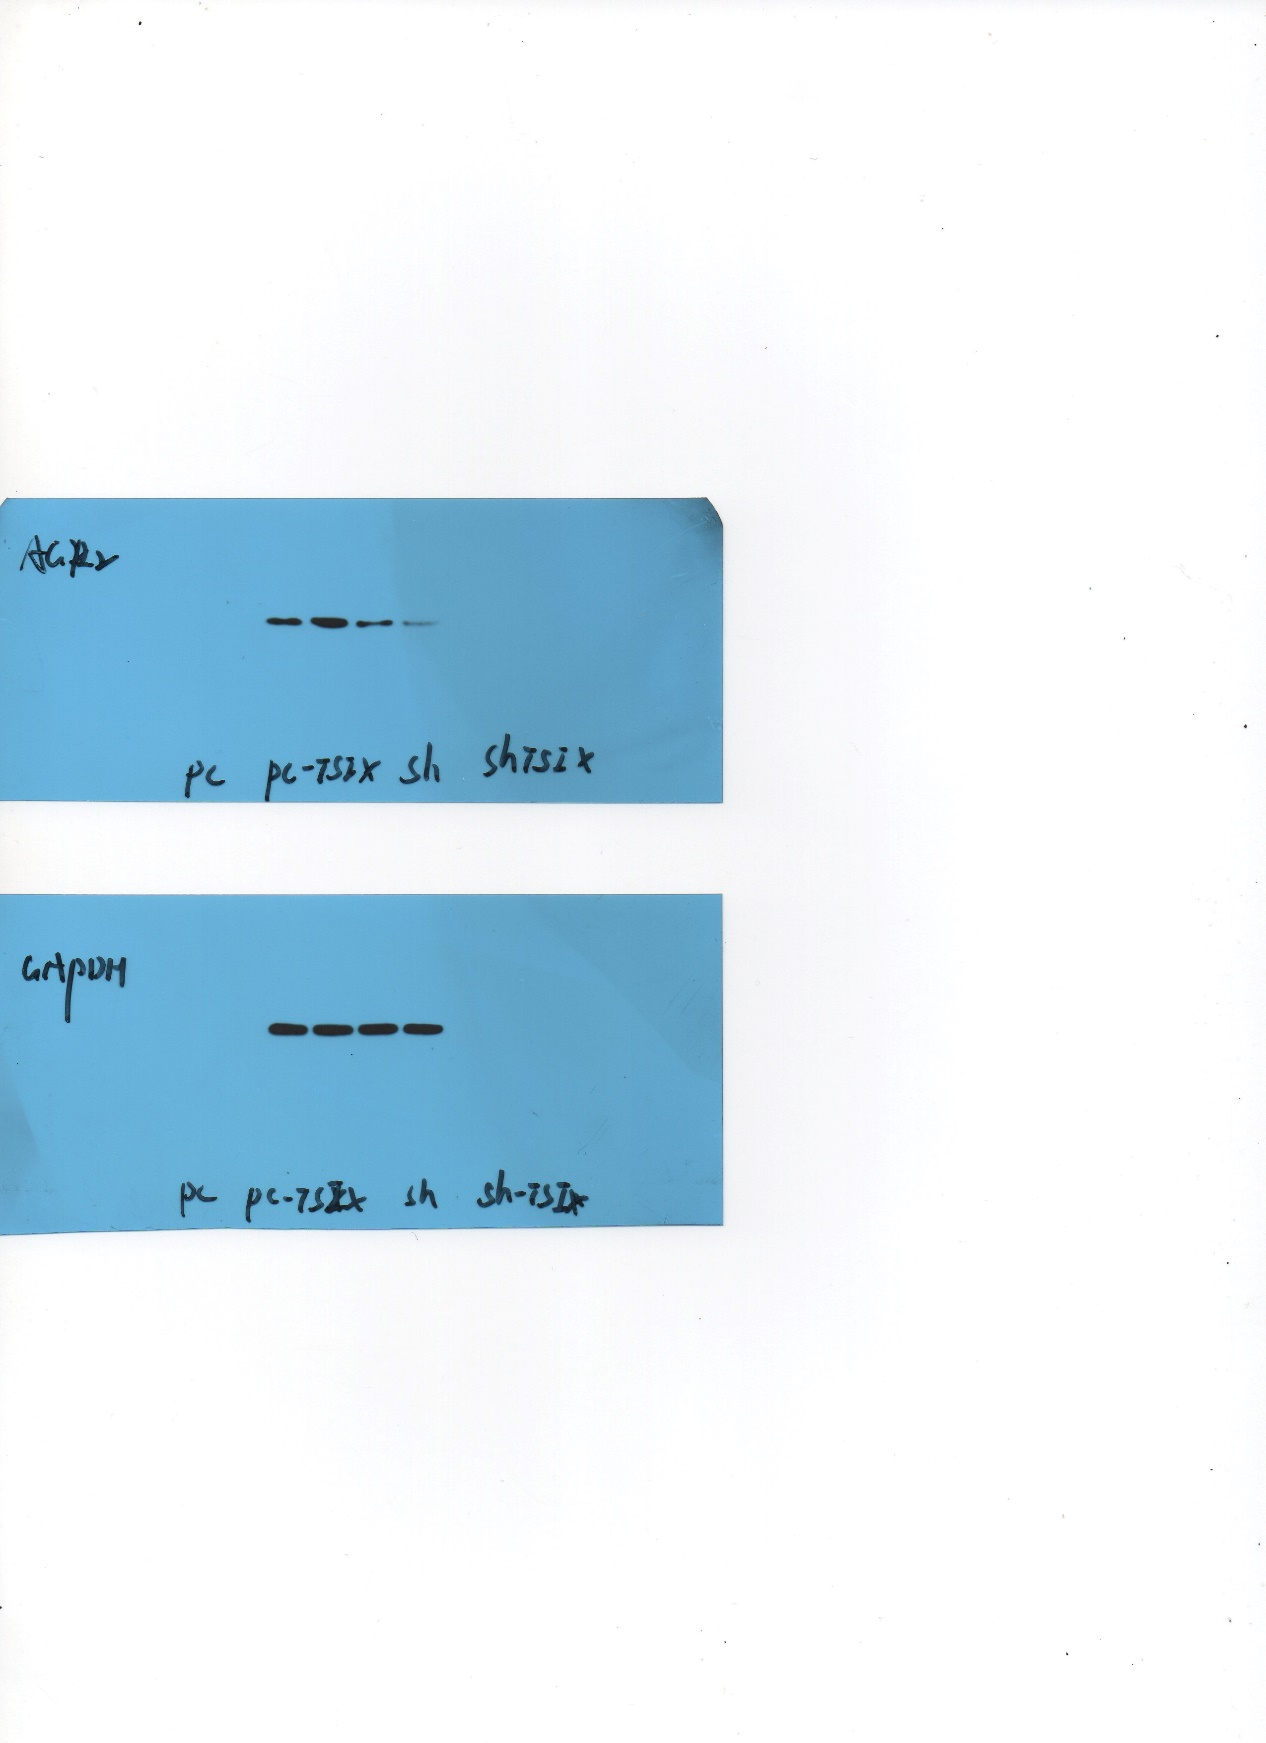 AGR2
pc pc-TSIX sh shTSIX
GAPDH
pc pc-TSIX sh sh-TSIX